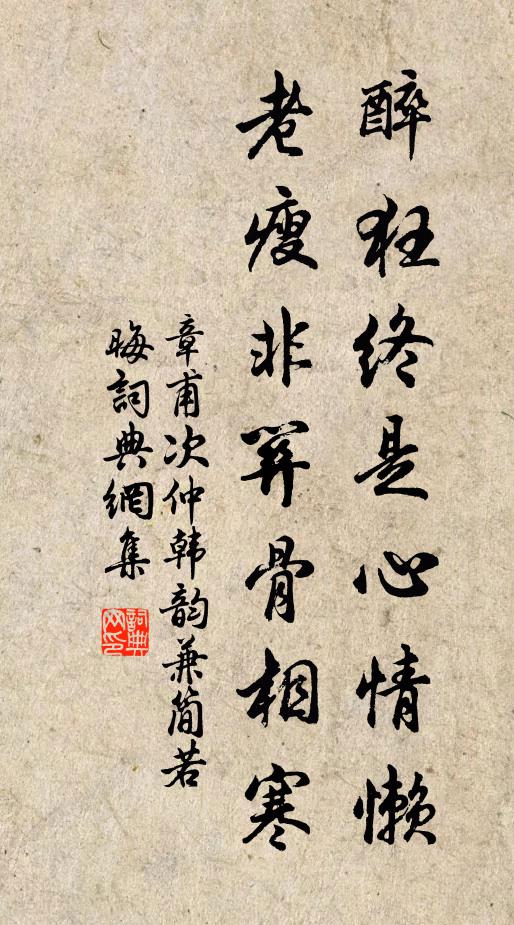 醉狂终是心情懒
老瘦非關骨相寒
章甫次仲韩韵兼简若
晦詞典網集
詞典
网印